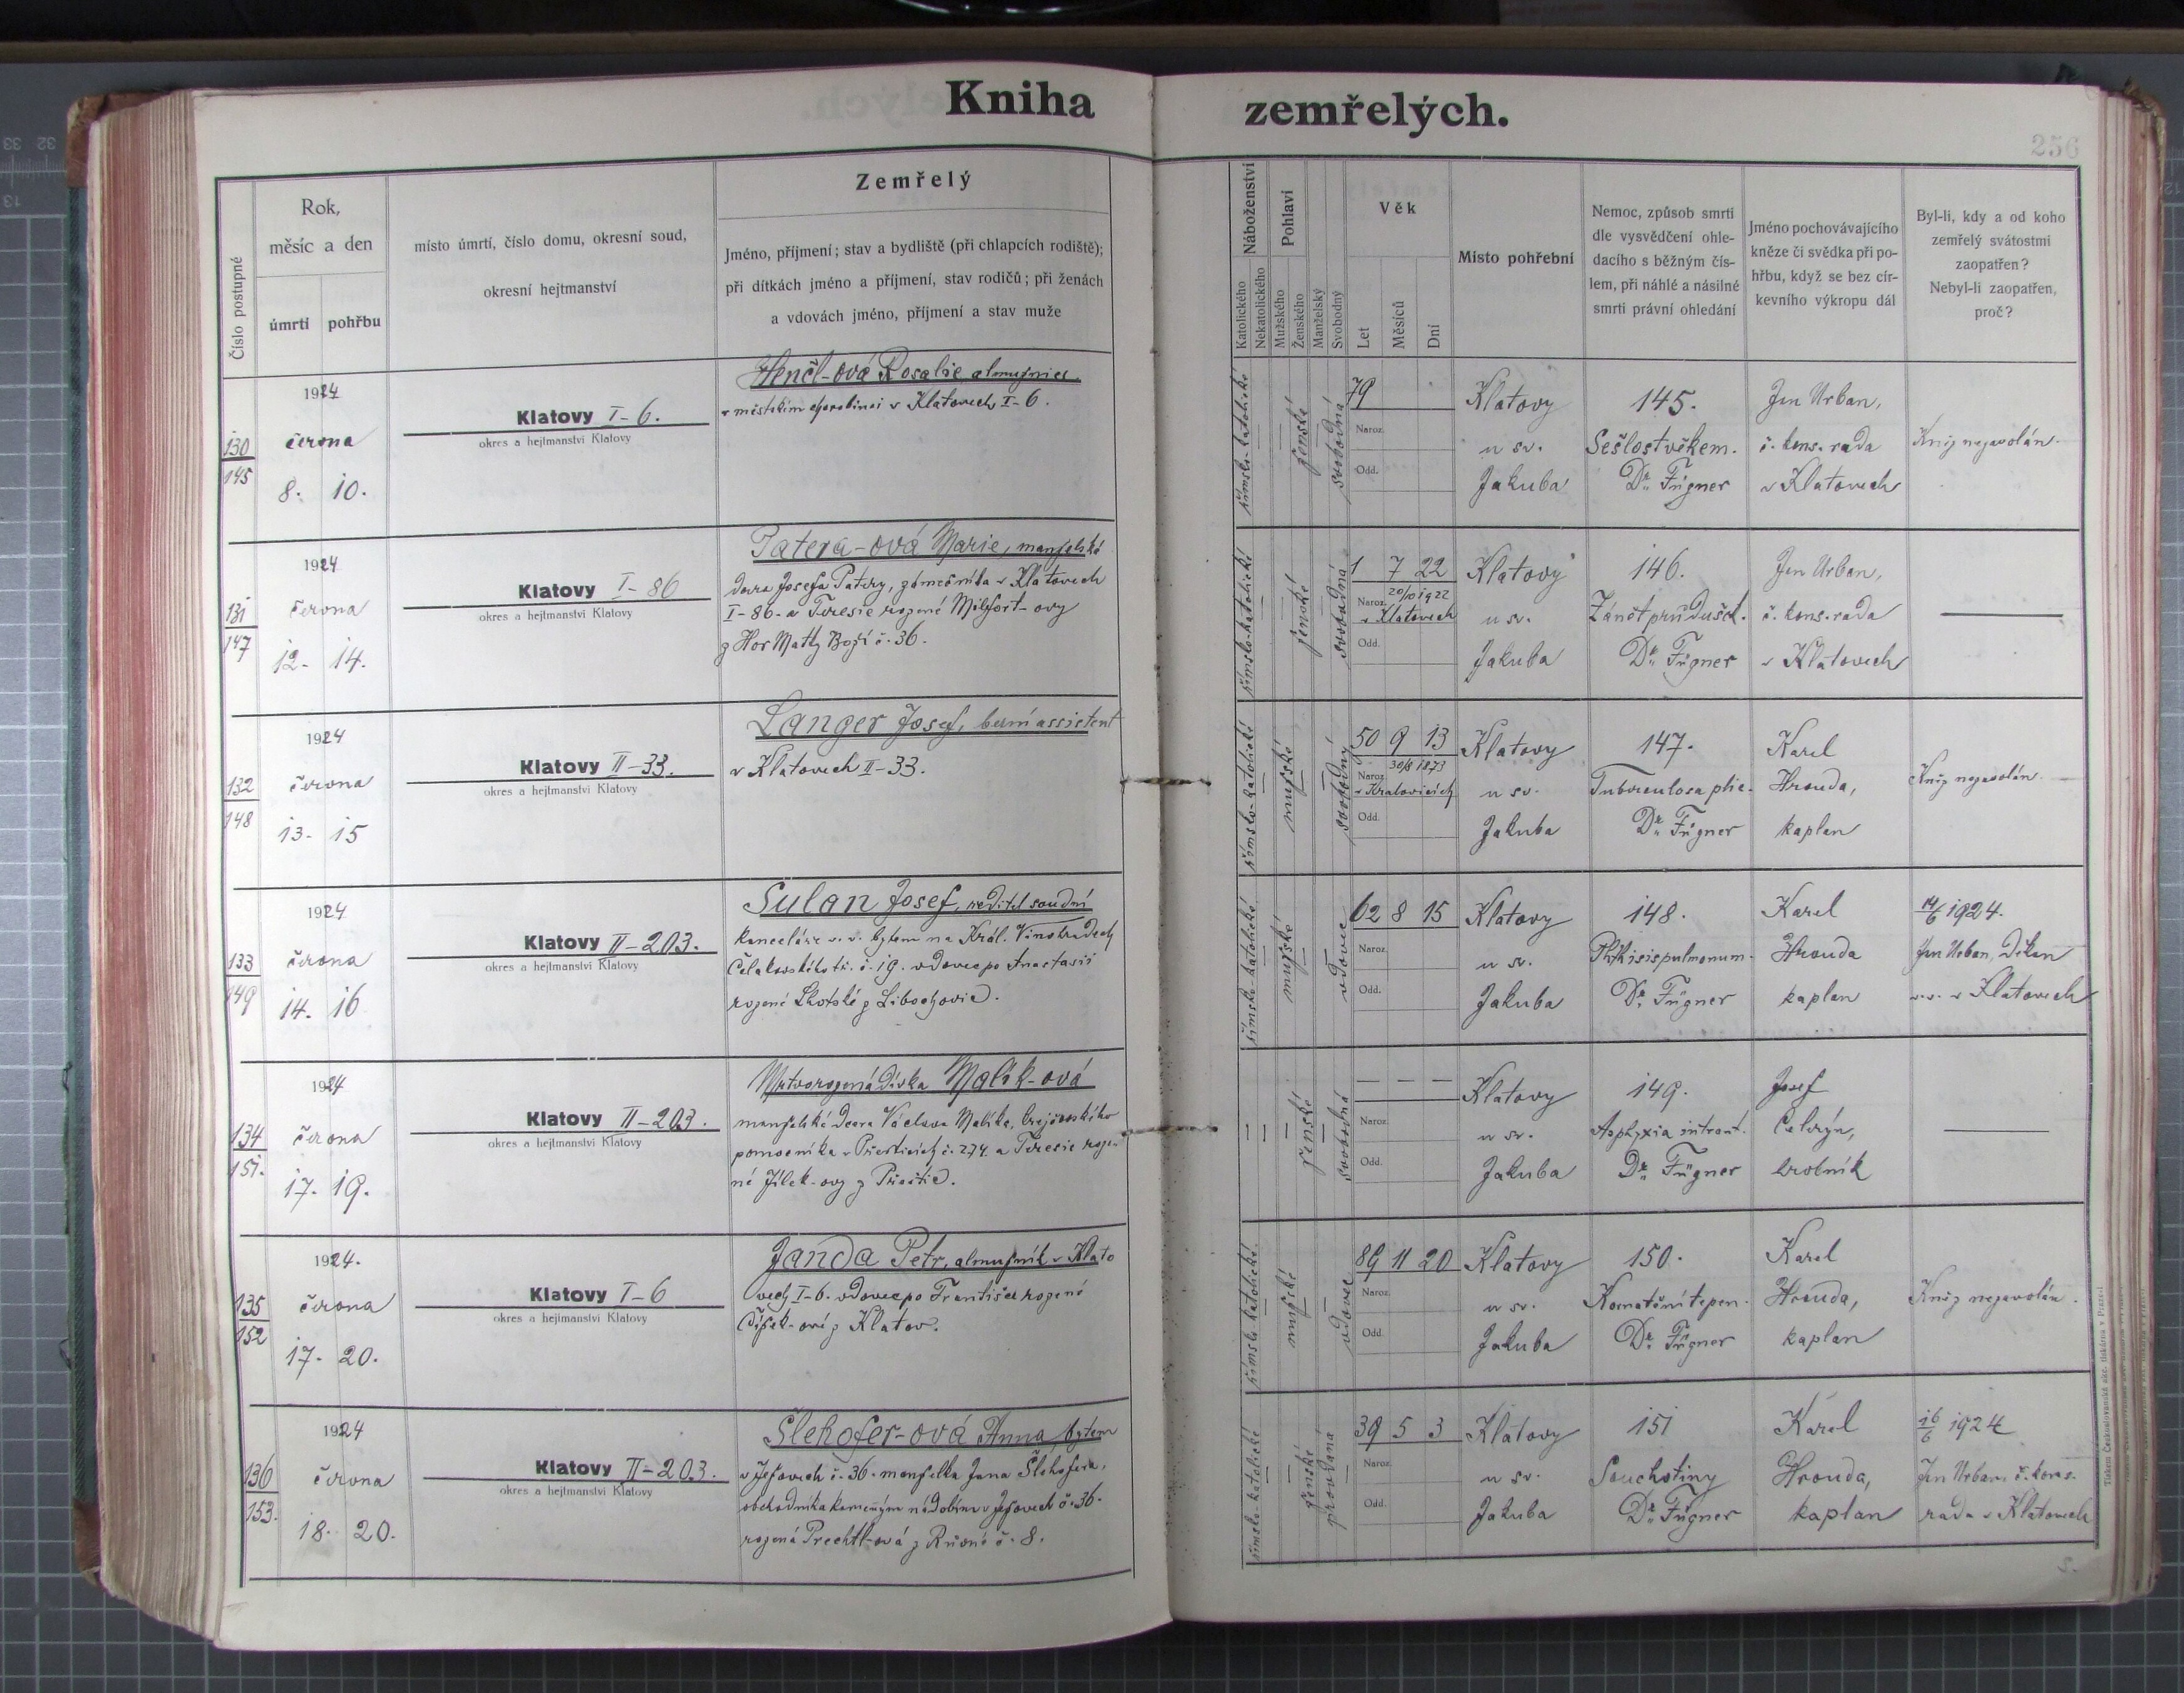 Kniha zemřelých.
256
Číslo postupné
Rok,
měsíc a den
úmrtí pohřbu
místo úmrtí, číslo domu, okresní soud,
okresní hejtmanství
Zemřelý
Jméno, příjmení; stav a bydliště (při chlapcích rodiště);
při dítkách jméno a příjmení, stav rodičů; při ženách
a vdovách jméno, příjmení a stav muže
Náboženství
Katolického
Nekatolického
Pohlaví
Mužského
Ženského
Manželský
Svobodný
Věk
Let
Měsíců
Dní
Místo pohřební
Nemoc, způsob smrti
dle vysvědčení ohle-
dacího s běžným čís-
lem, při náhlé a násilné
smrti právní ohledání
Jméno pochovávajícího
kněze či svědka při po-
hřbu, když se bez cír-
kevního výkropu dál
Byl-li, kdy a od koho
zemřelý svátostmi
zaopatřen?
Nebyl-li zaopatřen,
proč?
130
145
1924
června
8. 10.
Klatovy I-6.
okres a hejtmanství Klatovy
Rosalie, almužnice
v městském chorobinci v Klatovech I-6.
římsko-katolické
ženské
svobodná
79
Naroz.
Odd.
Klatovy
u sv.
Jakuba
145.
Sešlost věkem.
Dr. Fügner
Jan Urban,
č. kons. rada
v Klatovech
Kněz nezavolán.
131
147
1924
června
12. 14.
Klatovy I-86
okres a hejtmanství Klatovy
Patera-ová Marie, manželská
dcera Josefa Patery, zámečníka v Klatovech
I-86. a Teresie rozené Milfort-ovy
z Hor Matky Boží č. 36.
římsko-katolické
ženské
svobodná
1 7 22
20/10 1922
Naroz. v Klatovech
Odd.
Klatovy
u sv.
Jakuba
146.
Zánět průdušek.
Dr. Fügner
Jan Urban,
č. kons. rada
v Klatovech
132
148
1924
června
13. 15
Klatovy II-33.
okres a hejtmanství Klatovy
Langer Josef, berní assistent
v Klatovech II-33.
římsko-katolické
mužské
svobodný
50 9 13
30/8 1873
Naroz. v Kralovicích
Odd.
Klatovy
u sv.
Jakuba
147.
Tuberculosa plic.
Dr. Fügner
Karel
Hrouda,
kaplan
Kněz nezavolán.
133
149
1924
června
14. 16
Klatovy II-203.
okres a hejtmanství Klatovy
Sulan Josef, ředitel soudní
kanceláře v. v. bytem na Král. Vinohradech
Čelakovského tř. č. 19. vdovec po Anastasii
rozené Lhotské z Libochovic.
římsko-katolické
mužské
vdovec
62 8 15
Naroz.
Odd.
Klatovy
u sv.
Jakuba
148.
Phthisis pulmonum.
Dr. Fügner
Karel
Hrouda
kaplan
14/6 1924.
Jan Urban, děkan
v. v. v Klatovech
134
151.
1924
června
17. 19.
Klatovy II-203.
okres a hejtmanství Klatovy
Mrtvorozená dívka Malík-ová
manželská dcera Václava Malíka, krejčovského
pomocníka v Přešticích č. 274. a Teresie roze-
né Jílek-ovy z Přeštic.
ženské
svobodná
— — —
Naroz.
Odd.
Klatovy
u sv.
Jakuba
149.
Asphyxia intraut.
Dr. Fügner
Josef
hrobník
135
152
1924.
června
17. 20.
Klatovy I-6
okres a hejtmanství Klatovy
Janda Petr, almužník v Klato
vech I-6. vdovec po Františce rozené
Čížek-ové z Klatov.
římsko katolické
mužské
vdovec
89 11 20
Naroz.
Odd.
Klatovy
u sv.
Jakuba
150.
Kornatění tepen.
Dr. Fügner
Karel
Hrouda,
kaplan
Kněz nezavolán.
136
153.
1924
června
18. 20.
Klatovy II-203.
okres a hejtmanství Klatovy
Šlehofer-ová Anna, bytem
v Ježovech č. 36. manželka Jana Šlehofera,
obchodníka kamenným nádobím v Ježovech č. 36.
rozená Prechtl-ová z č. 8.
římsko-katolické
ženské
provdaná
39 5 3
Naroz.
Odd.
Klatovy
u sv.
Jakuba
151
Souchotiny
Dr. Fügner
Karel
Hrouda,
kaplan
16/6 1924
Jan Urban, č. kons.
rada v Klatovech